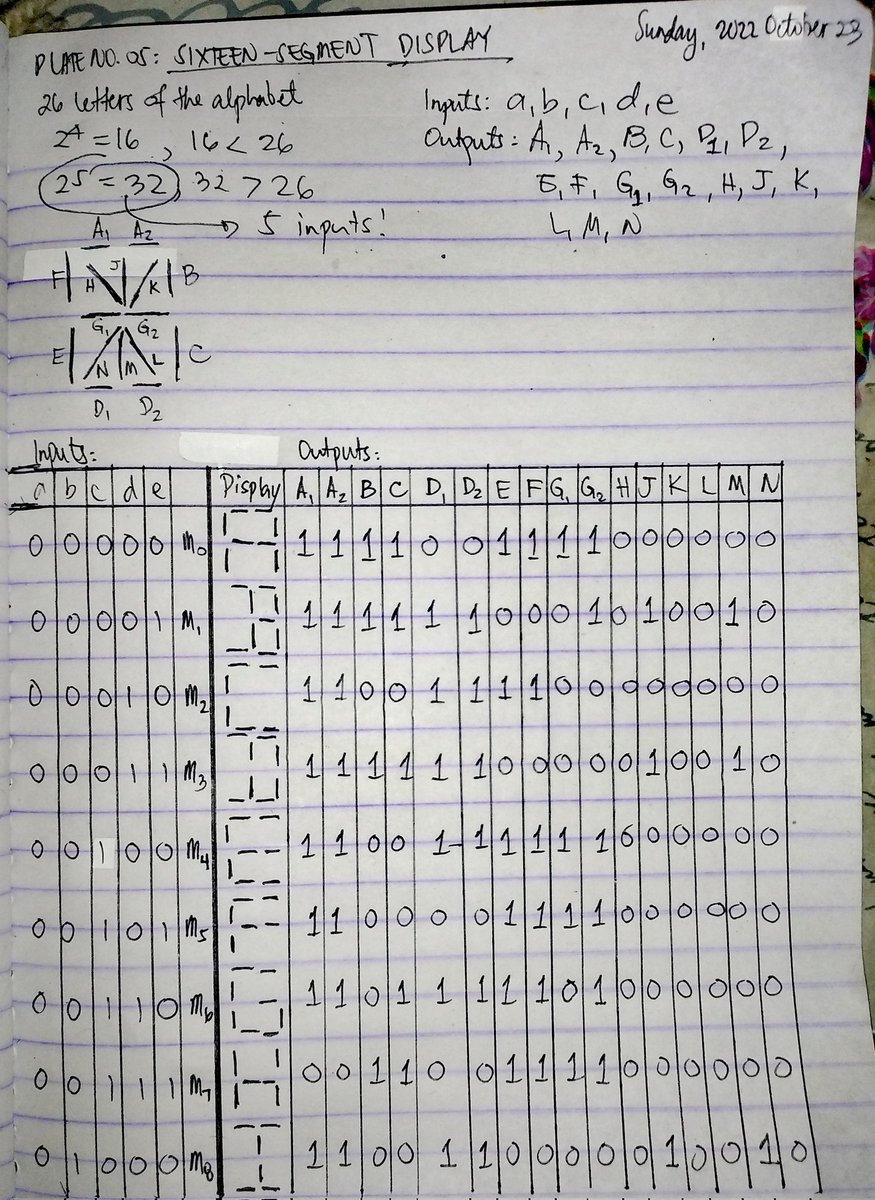 Sunday, 2022 October 23
PLATE NO. 05: SIXTEEN-SEGMENT DISPLAY
26 letters of the alphabet Inputs: a, b, c, d, e
2⁴ = 16, 16 < 26 Outputs: A₁, A₂, B, C, D₁, D₂,
2⁵ = 32, 32 > 26 E, F, G₁, G₂, H, J, K,
5 inputs! L, M, N
A₁ A₂
F H J K B
G₁ G₂
E N M L C
D₁ D₂
Inputs: Outputs:
a b c d e Display A₁ A₂ B C D₁ D₂ E F G₁ G₂ H J K L M N
0 0 0 0 0 m₀ 1 1 1 1 0 0 1 1 1 1 0 0 0 0 0 0
0 0 0 0 1 m₁ 1 1 1 1 1 1 0 0 0 1 0 1 0 0 1 0
0 0 0 1 0 m₂ 1 1 0 0 1 1 1 1 0 0 0 0 0 0 0 0
0 0 0 1 1 m₃ 1 1 1 1 1 1 0 0 0 0 0 1 0 0 1 0
0 0 1 0 0 m₄ 1 1 0 0 1 1 1 1 1 1 0 0 0 0 0 0
0 0 1 0 1 m₅ 1 1 0 0 0 0 1 1 1 1 0 0 0 0 0 0
0 0 1 1 0 m₆ 1 1 0 1 1 1 1 1 0 1 0 0 0 0 0 0
0 0 1 1 1 m₇ 0 0 1 1 0 0 1 1 1 1 0 0 0 0 0 0
0 1 0 0 0 m₈ 1 1 0 0 1 1 0 0 0 0 0 1 0 0 1 0